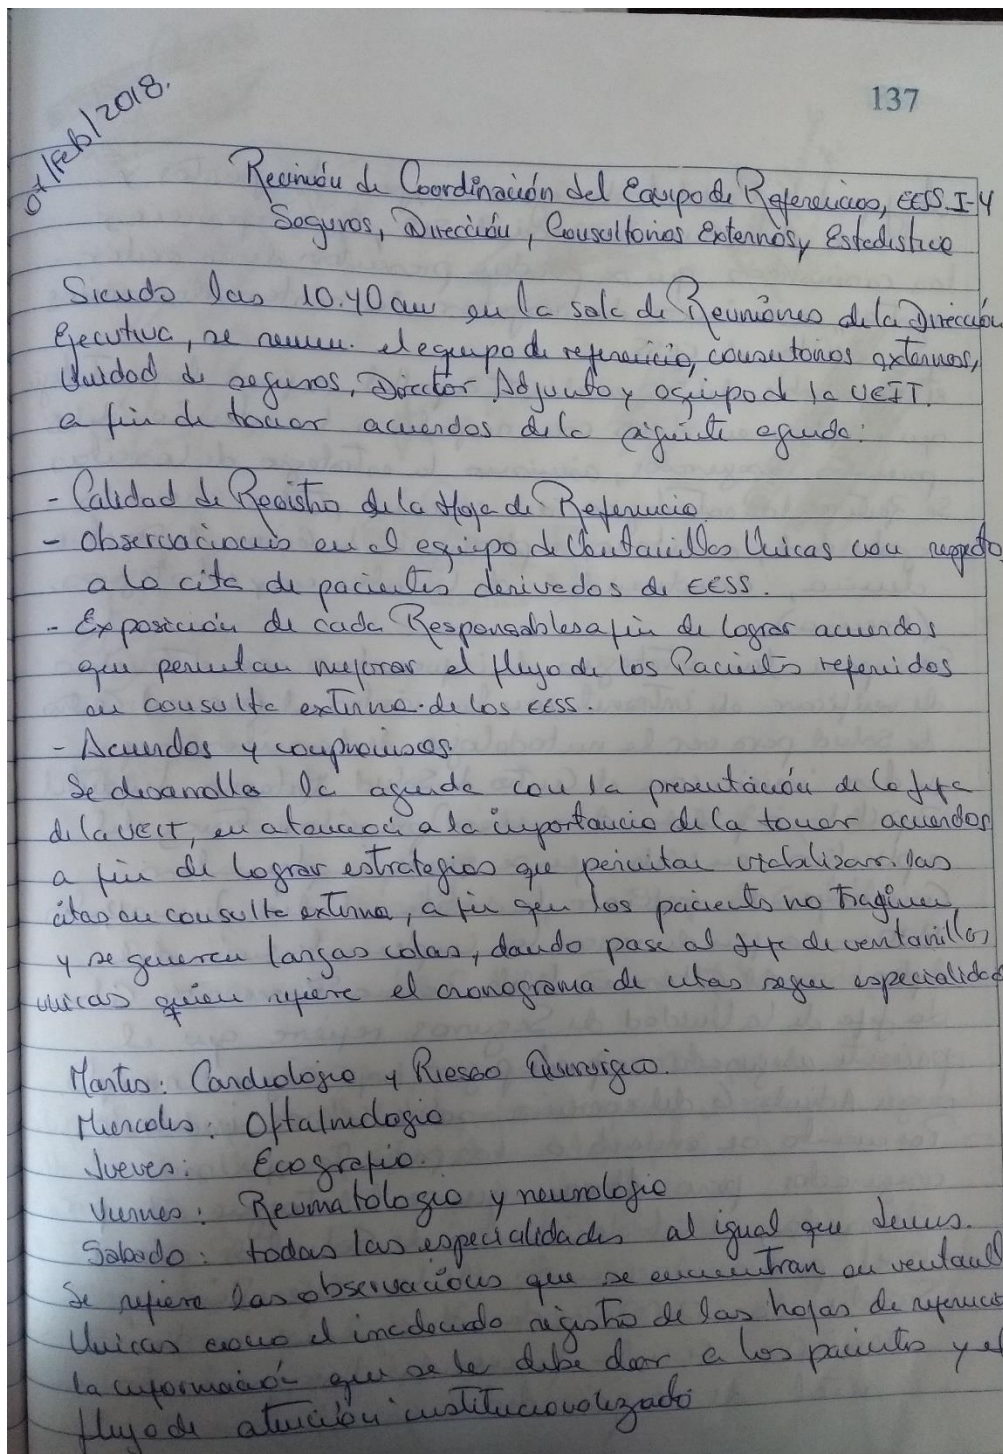 137
07/Feb/2018.
Reunión de Coordinación del Equipo de Referencias, EESS I-4
Seguros, Dirección, Consultorios Externos y Estadistica
Siendo las 10.40 am en la sala de Reuniones de la Dirección
Ejecutiva, se reunen el equipo de referencia, consultorios externos,
Unidad de seguros, Director Adjunto y equipo de la UEIT.
a fin de tomar acuerdos de la siguiente agenda:
- Calidad de Registro de la Hoja de Referencia
- Observaciones en el equipo de Ventanillas Unicas con respecto
a la cita de pacientes derivados de EESS.
- Exposición de cada Responsables a fin de lograr acuerdos
que permitan mejorar el flujo de los Pacientes referidos
en consulta externa de los EESS.
- Acuerdos y compromisos.
Se desarrolla la agenda con la presentación de la jefa
de la UEIT, en atención a la importancia de la tomar acuerdos
a fin de lograr estrategias que permitan viabilizar las
citas en consulta externa, a fin que los pacientes no
y se generen largas colas, dando pase al jefe de ventanillas
unicas quien refiere el cronograma de citas segun especialidad
Martes: Cardiologia y Riesgo Quirurgico.
Miercoles: Oftalmologia
Jueves: Ecografia.
Viernes: Reumatologia y neurologia
Sabado: todas las especialidades al igual que
Se refiere las observaciones que se encuentran en ventanill
Unicas como el inadecuado registro de las hojas de referencia
la información que se le debe dar a los pacientes y el
flujo de atención institucionalizado